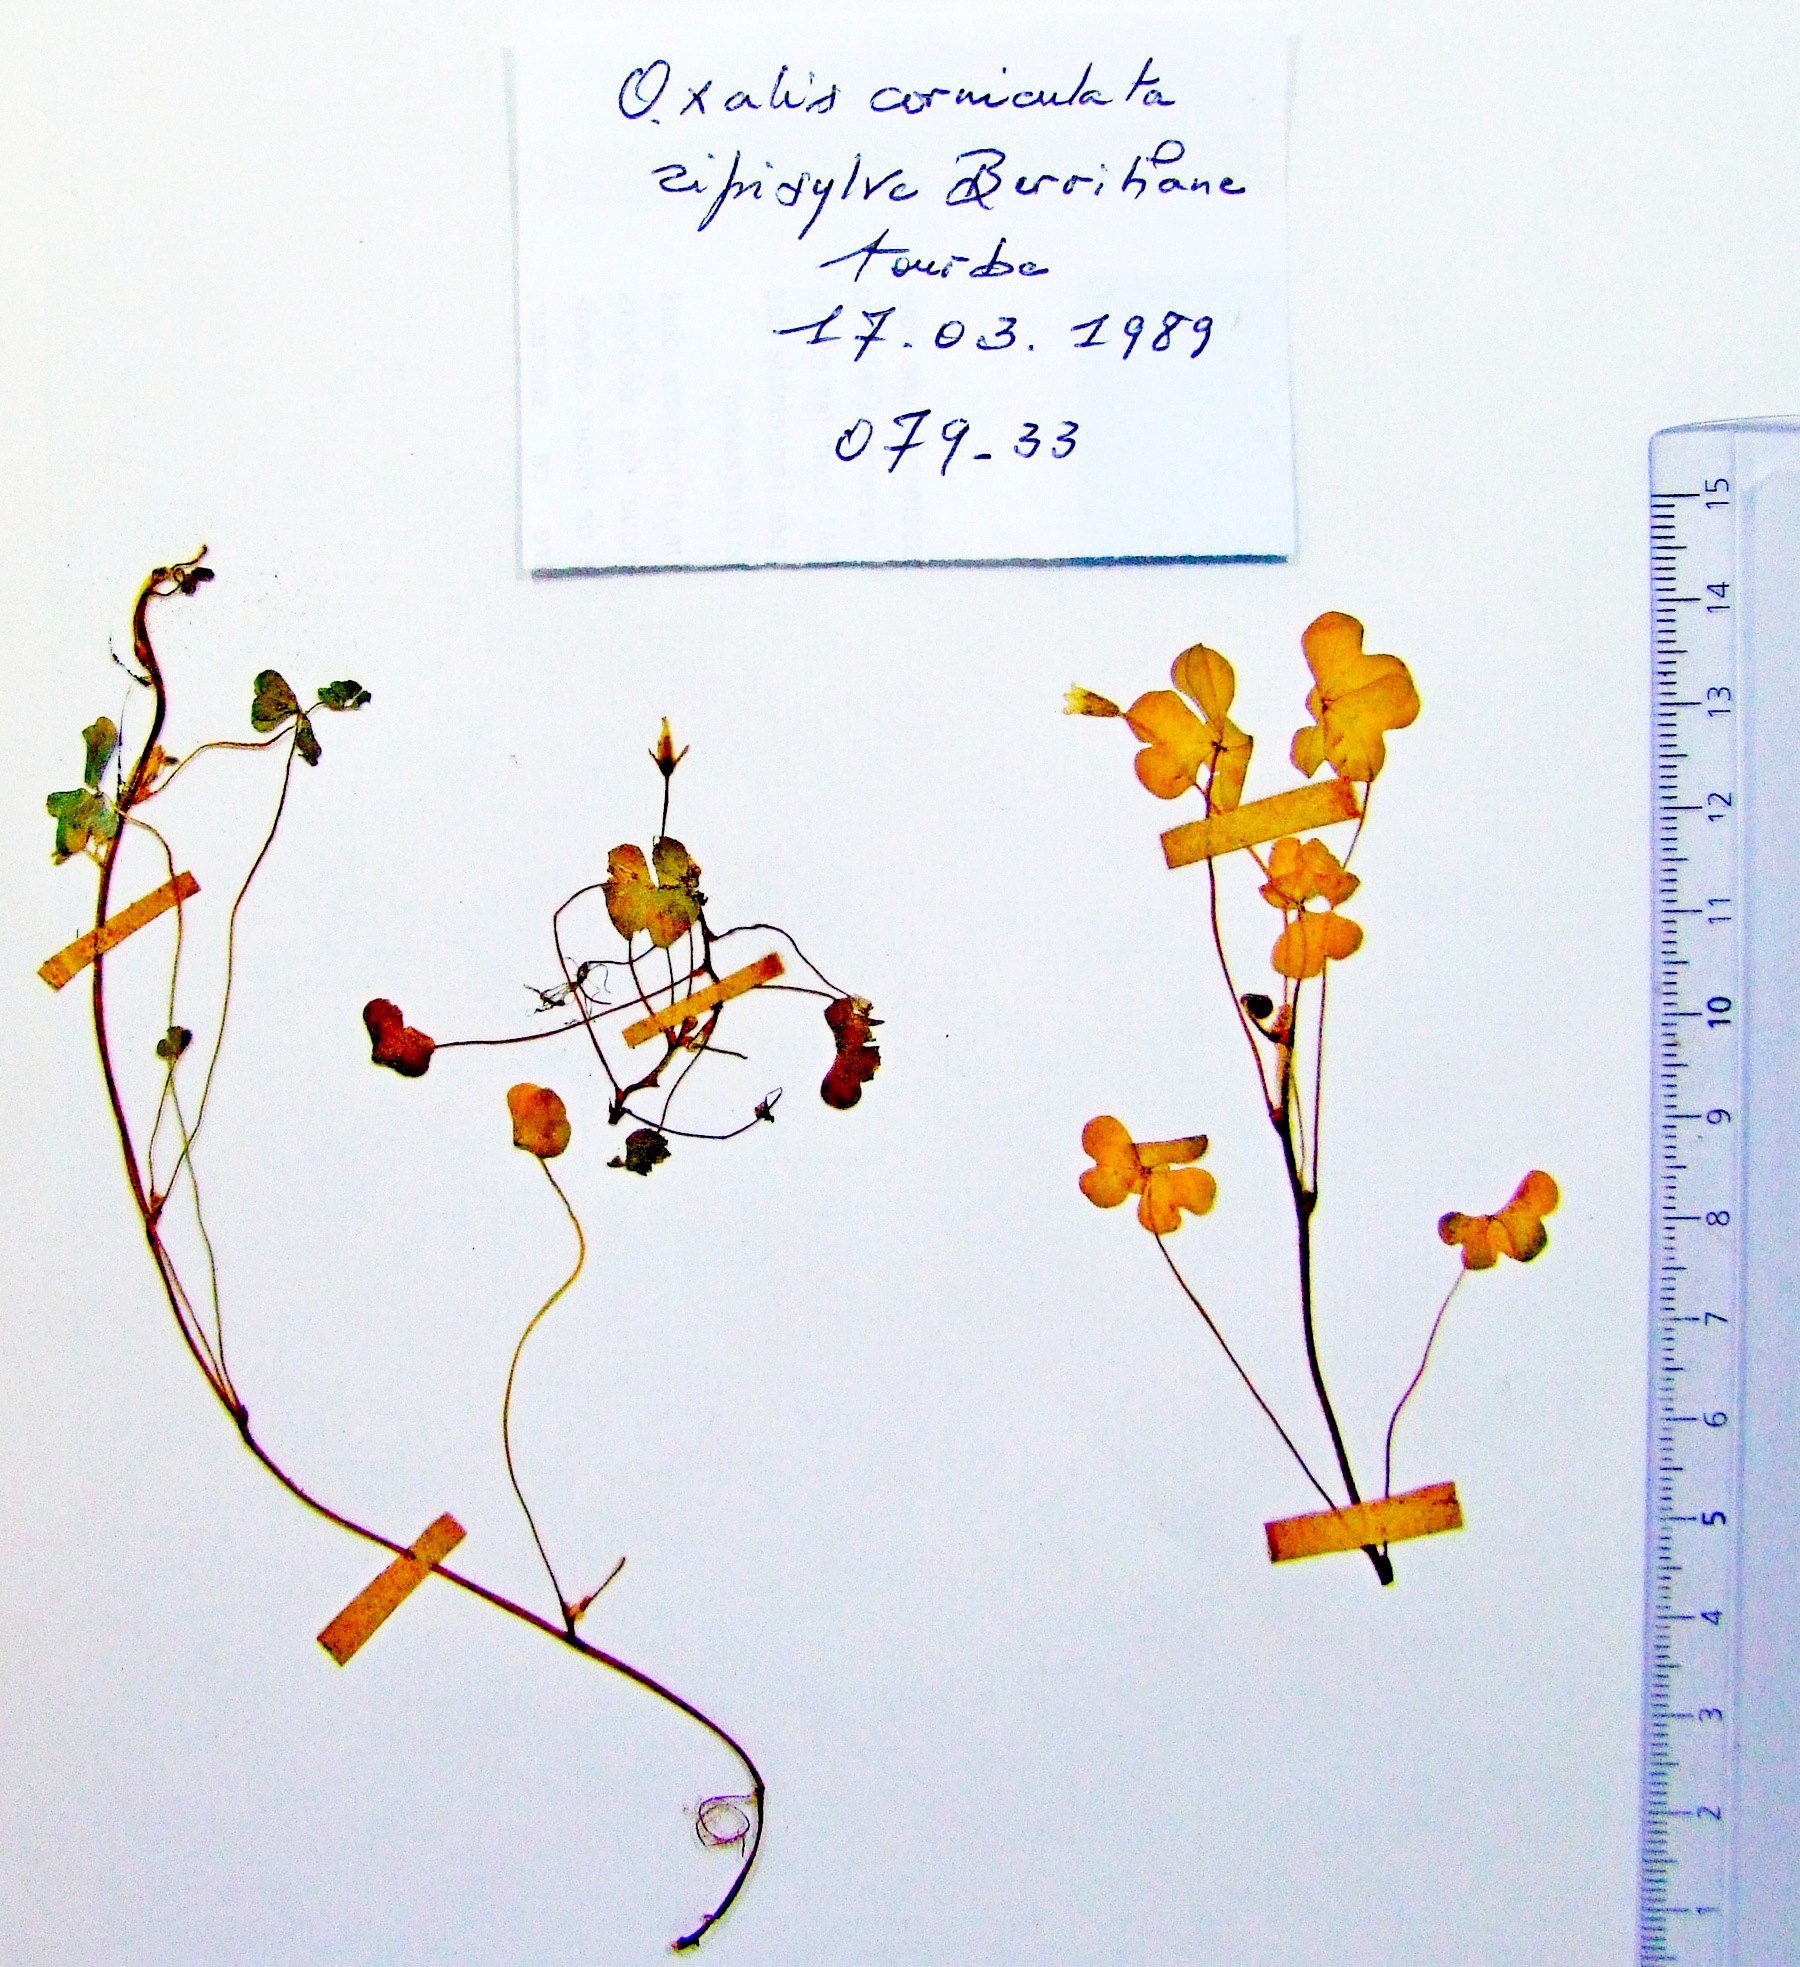 Oxalis corniculata
ripisylve Berrihane
tourbe
17.03.1989
079-33
15
14
13
12
11
10
9
8
7
6
5
4
3
2
1